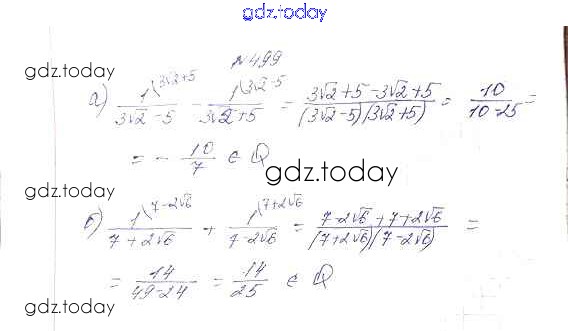 gdz.today
№499
gdz.today
а) 1\(3√2+5) / (3√2-5) - 1\(3√2-5) / (3√2+5) = (3√2+5-3√2+5) / ((3√2-5)(3√2+5)) = 10 / (10-25) =
= - 10/7 ∈ Q
gdz.today
gdz.today
б) 1\(7-2√6) / (7+2√6) + 1\(7+2√6) / (7-2√6) = (7-2√6+7+2√6) / ((7+2√6)(7-2√6)) =
= 14 / (49-24) = 14/25 ∈ Q
gdz.today
gdz.today